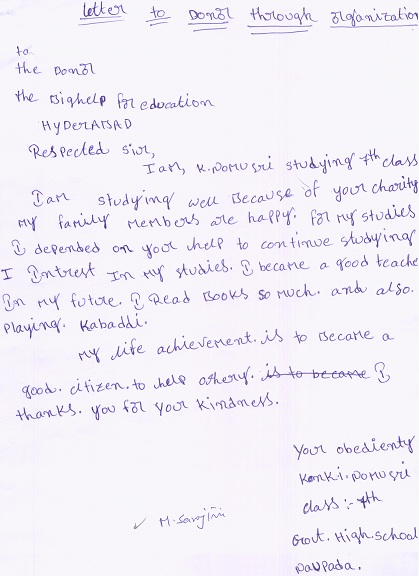 Letter to Donor through organization
to
the Donor
the Bighelp for education
HYDERABAD
Respected sir,
I am, K. Domusri studying 7th class
I am studying well Because of your charity
My family members are happy. for my studies
I depended on your help to continue studying
I Intrest In my studies. I became a good teache
In my future. I Read Books so much. and also.
Playing. Kabaddi.
My life achievement. is to Became a
good. citizen. to help othery. is to became I
thanks. you for your kindness.
Your obedienty
Konki. Domusri
class :- 7th
Govt. High. school
Davpada.
✓ M. Sarojini